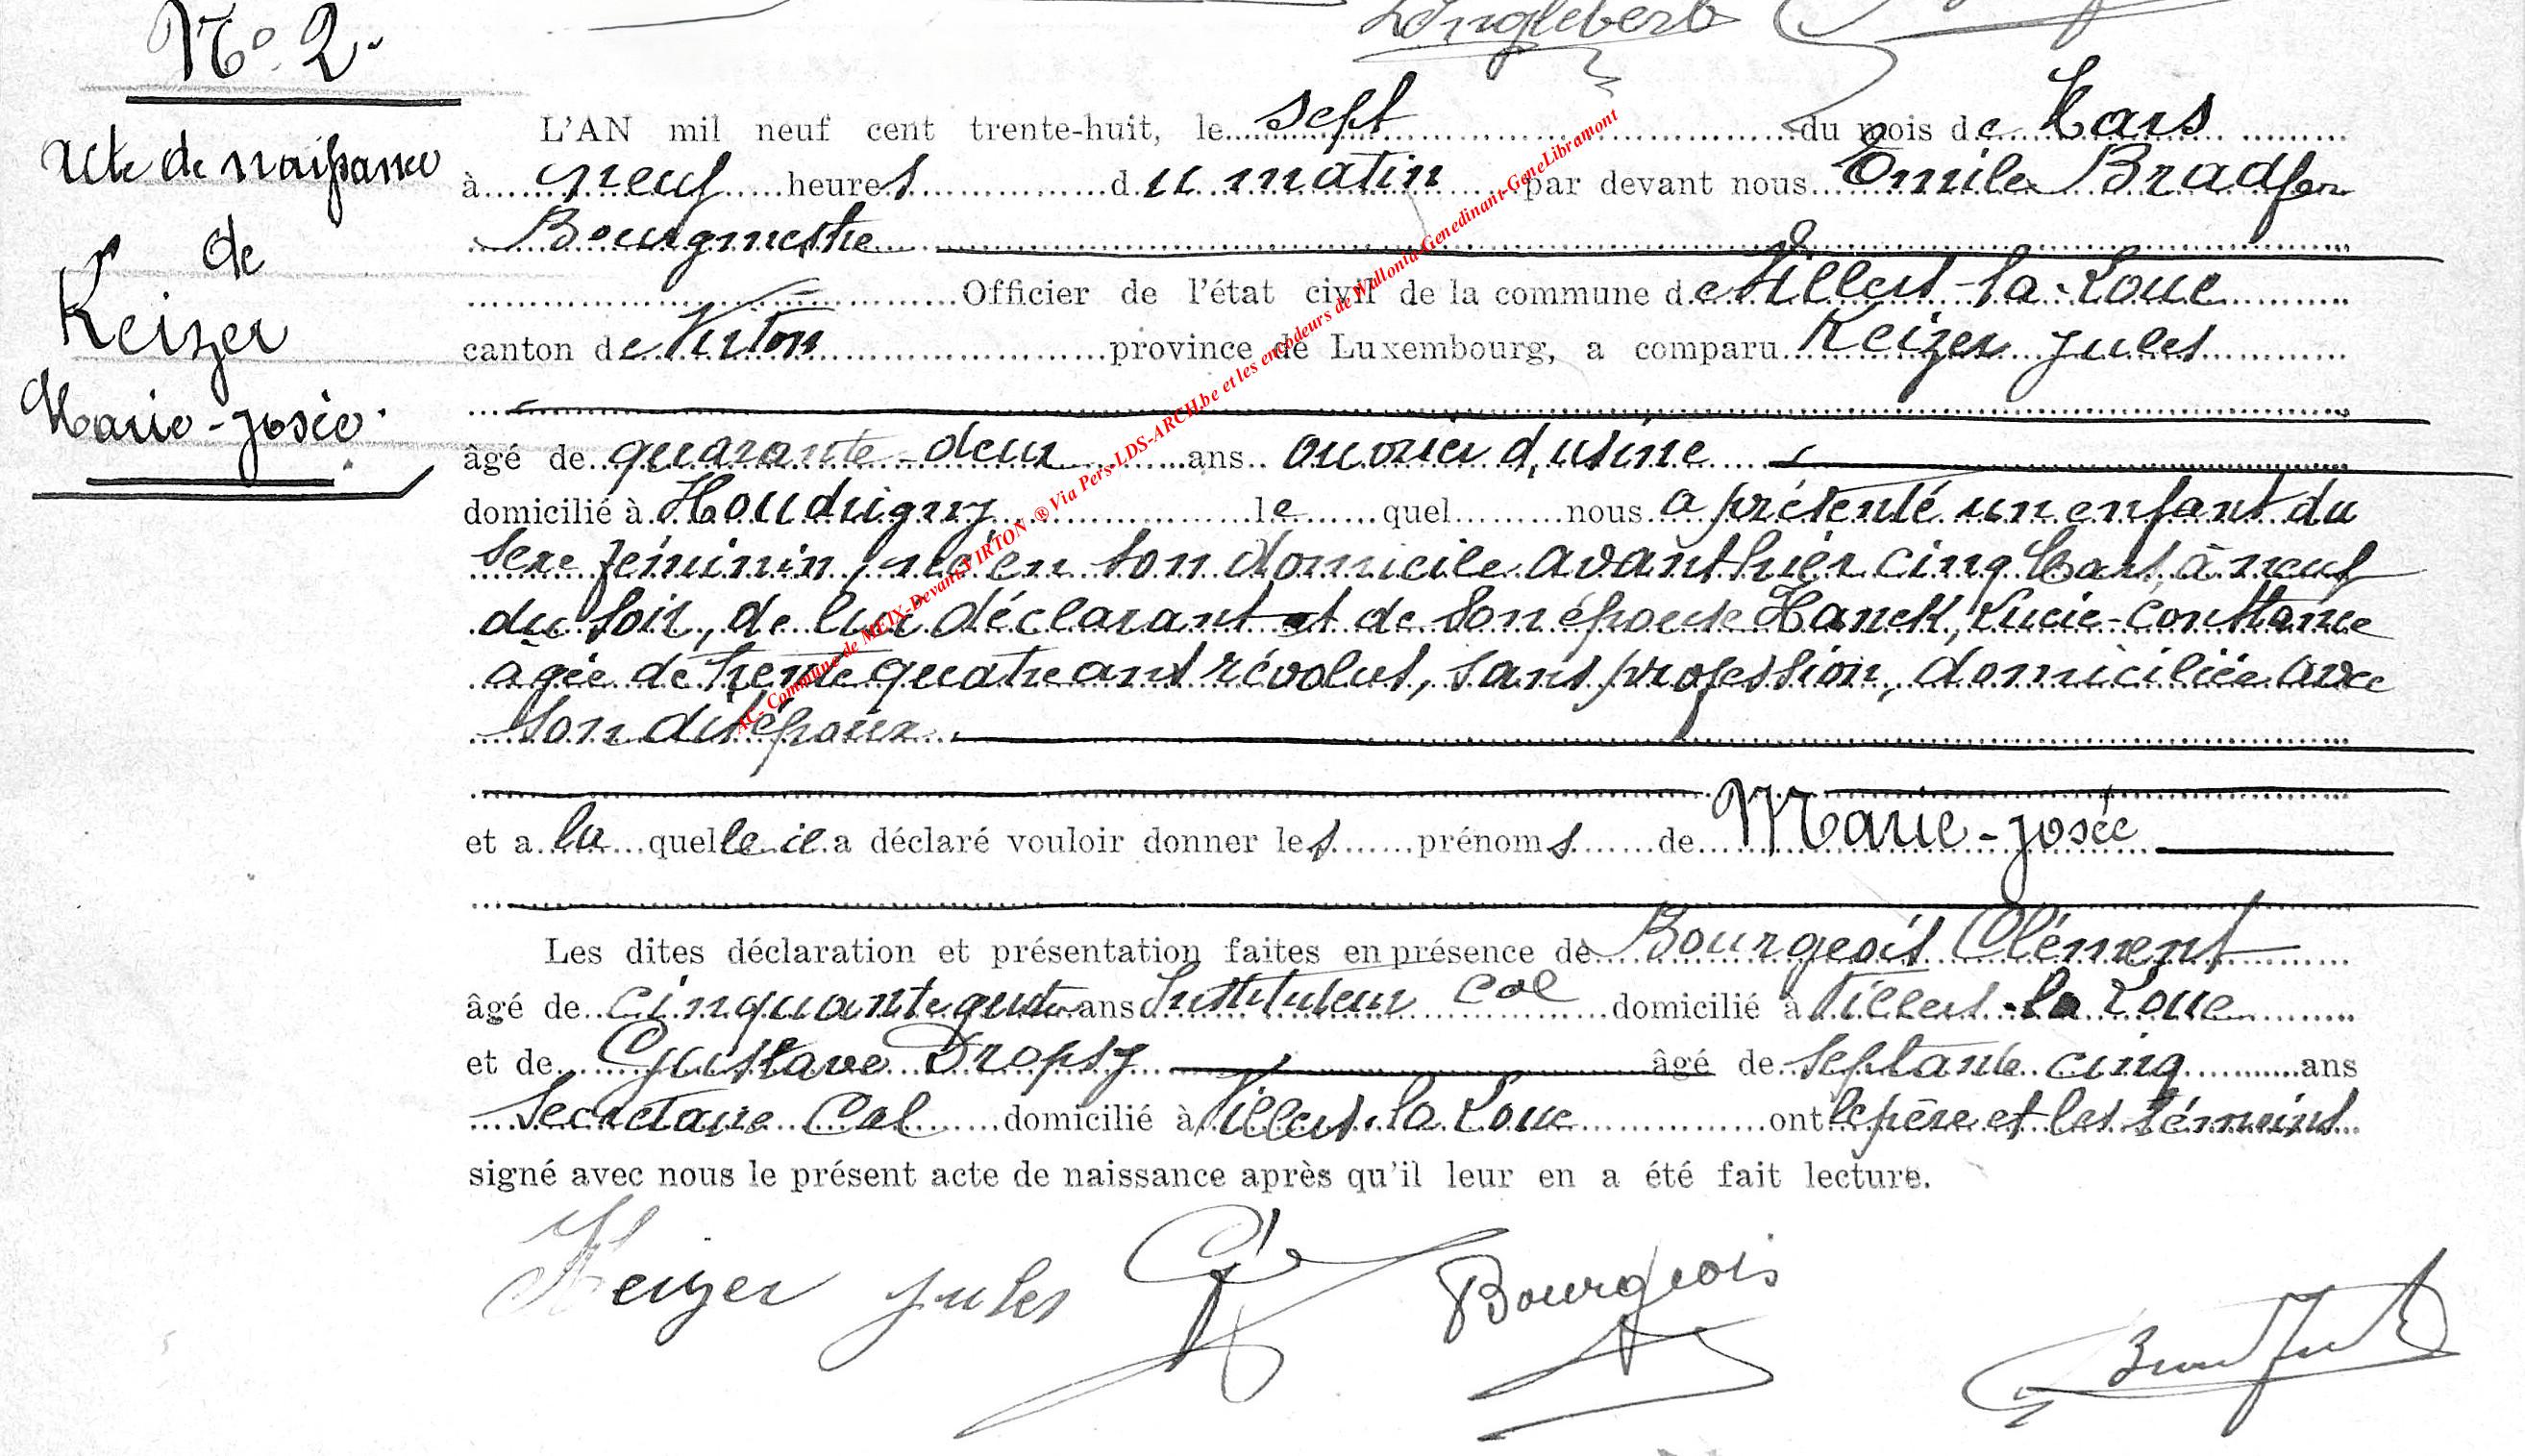 L'Inglebert
N° 2.
Acte de naissance
de
Keizer
Marie-Josée.
L'AN mil neuf cent trente-huit, le sept du mois de Mars
à neuf heures du matin par devant nous Emile Bradfer
Bourgmestre
Officier de l'état civil de la commune de Villers-la-Loue
canton de Virton province de Luxembourg, a comparu Keizer Jules
âgé de quarante-deux ans ouvrier d'usine
domicilié à Houdrigny le quel nous a présenté un enfant du
sexe féminin, né en son domicile avant hier cinq Mars, à neuf
du soir, de lui déclarant et de son épouse Hanck, Lucie-Constance
âgée de trente quatre ans révolus, sans profession, domiciliée avec
son dit époux.
et a la quelle il a déclaré vouloir donner les prénoms de Marie-Josée
Les dites déclaration et présentation faites en présence de Bourgeois Clément
âgé de cinquante quatre ans Instituteur Cal domicilié à Villers-la Loue
et de Gustave Dropsy âgé de septante cinq ans
Secrétaire Cal domicilié à Villers-la Loue ont le père et les témoins
signé avec nous le présent acte de naissance après qu'il leur en a été fait lecture.
Keizer Jules Bourgeois
AC- Commune de MEIX-Devant-VIRTON ® Via Pers-LDS-ARCH.be et les encodeurs de Wallonia-Genedinant-GeneLibramont